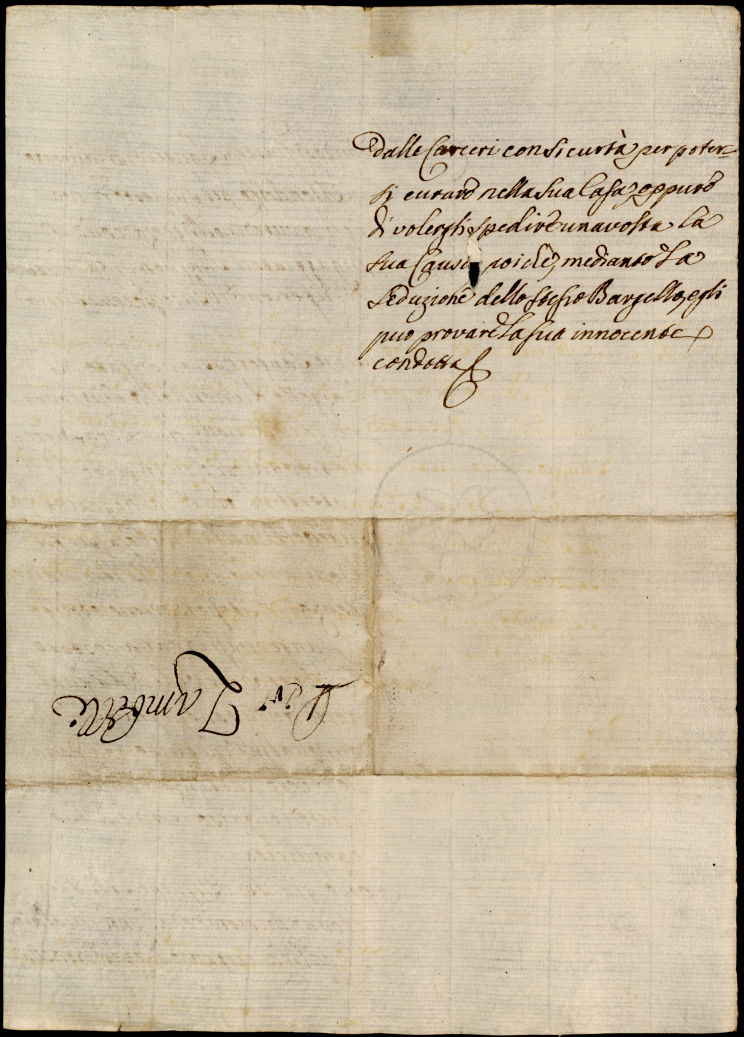 dalle Carceri con sicurtà per poter=
si curare nella sua Casa, oppure
di volergli spedire una volta la
sua Causa, poiche, mediante La
Seduzione dello stesso Bargello, egli
può provare La sua innocente
condotta
Zambelli